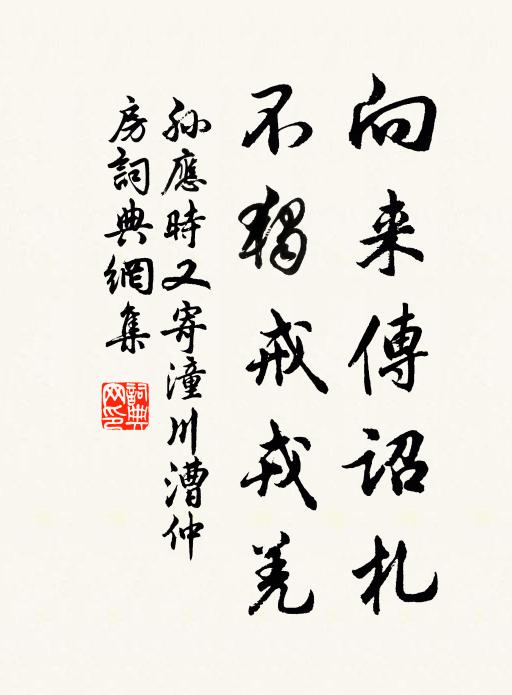 向来傳詔札
不獨戒戎羌
孫應時又寄潼川漕仲
房詞典網集
詞典
网印